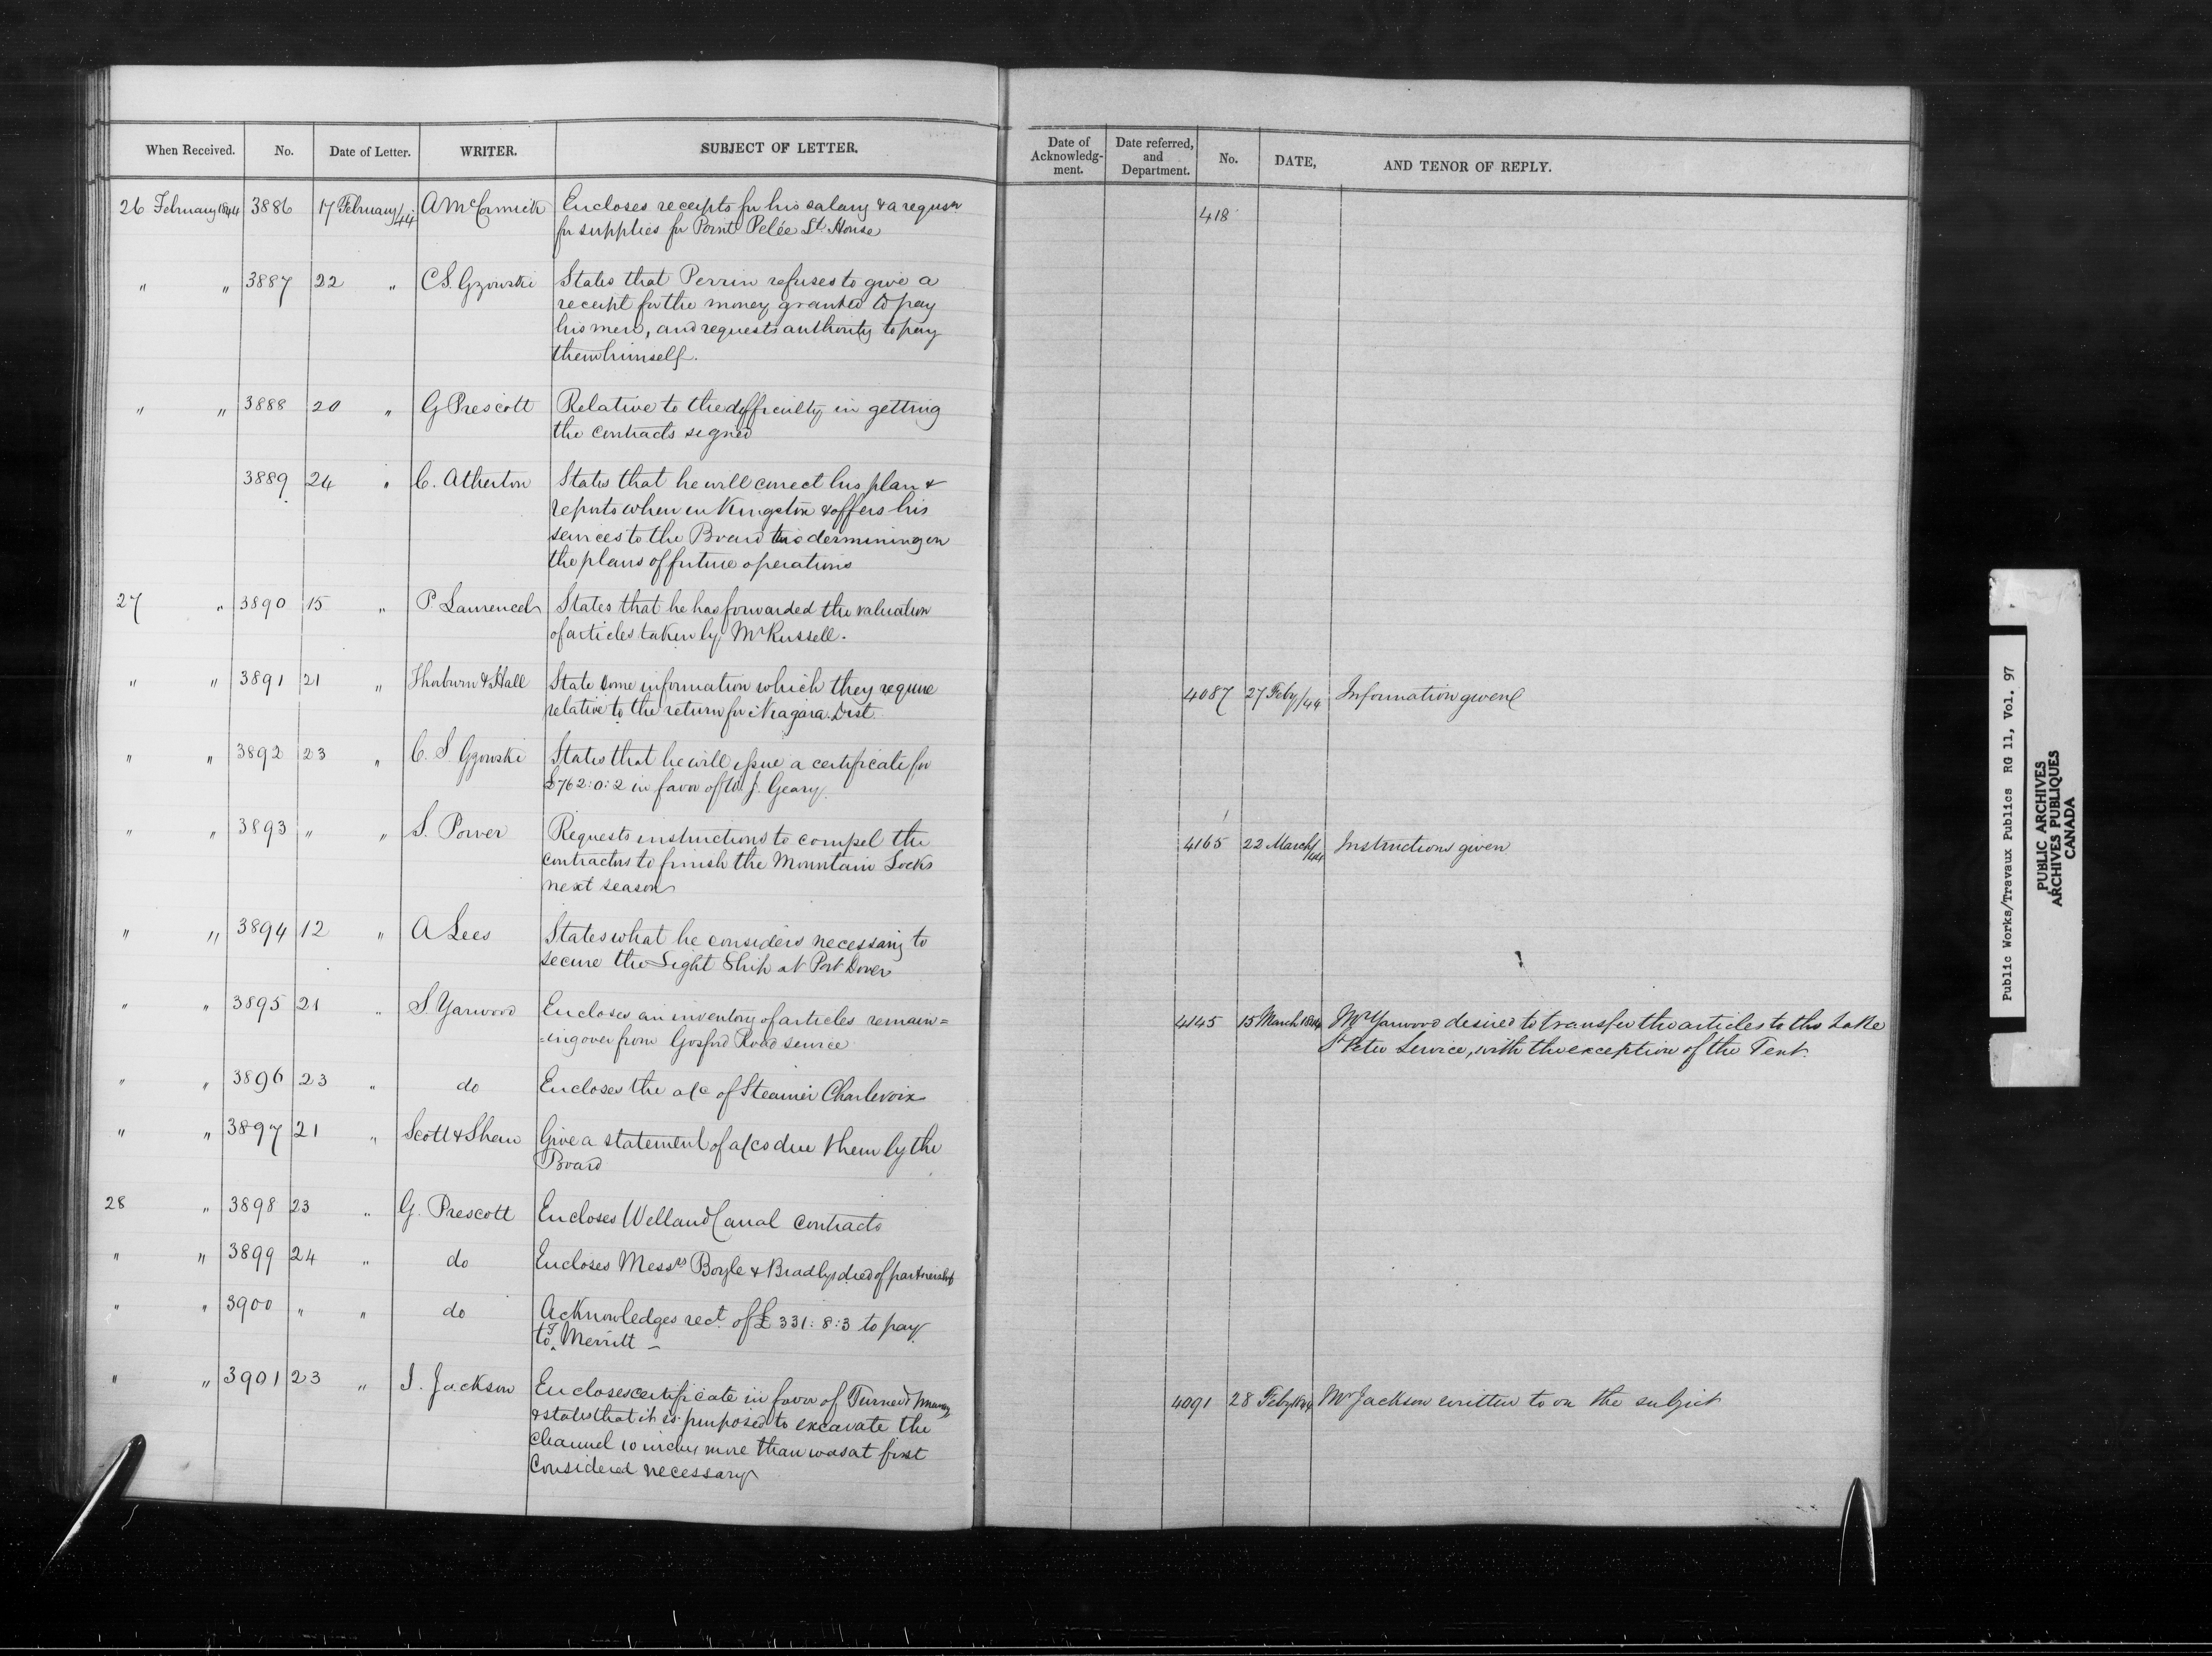 When Received. No. Date of Letter. WRITER. SUBJECT OF LETTER.
Date of Acknowledg-ment. Date referred, and Department. No. DATE, AND TENOR OF REPLY.
26 February 1844 3886 17 February/44 A McCormick Encloses receipts for his salary & a requsn 418
for supplies for Point Pelée Lt. House
" " 3887 22 " C S. Gzowski States that Perrin refuses to give a
receipt for the money granted to pay
his men, and requests authority to pay
them himself.
" " 3888 20 " G Prescott Relative to the difficulty in getting
the contracts signed
3889 24 " C. Atherton States that he will correct his plan &
reports when in Kingston & offers his
services to the Board in dermining on
the plans of future operations
27 " 3890 15 " P Laurencel States that he has forwarded the valuation
of articles taken by Mr Russell.
" " 3891 21 " Thorburn & Hall State some information which they require 4087 27 Feby/44 Information given
relative to the return for Niagara Dist.
" " 3892 23 " C. S. Gzowski States that he will issue a certificate for
£762:0:2 in favor of W. J. Geary
" " 3893 " " S. Power Requests instructions to compel the 4165 22 March/44 Instructions given
contractors to finish the Mountain Locks
next season
" " 3894 12 " A Lees States what he considers necessary to
secure the Light Ship at Port Dover
" " 3895 21 " S Yarwood Encloses an inventory of articles remain= 4145 15 March 1844 Mr Yarwood desired to transfer the articles to the Lake
=ing over from Gosford Road service St Peter Service, with the exception of the Tent.
" " 3896 23 " do Encloses the a/c of Steamer Charlevoix
" " 3897 21 " Scott & Shaw Give a statement of a/cs due them by the
Board
28 " 3898 23 " G. Prescott Encloses Welland Canal Contracts
" " 3899 24 " do Encloses Messrs Boyle & Bradlys deed of partnership
" " 3900 " " do Acknowledges rect. of £331:8:3 to pay
to T Merritt —
" " 3901 23 " I. Jackson Encloses certificate in favor of Turner & Murray 4091 28 Feby 1844 Mr Jackson written to on the subject
& states that it is purposed to excavate the
channel 10 inches more than was at first
Considered necessary
Public Works/Travaux Publics RG 11, Vol. 97
PUBLIC ARCHIVES
ARCHIVES PUBLIQUES
CANADA